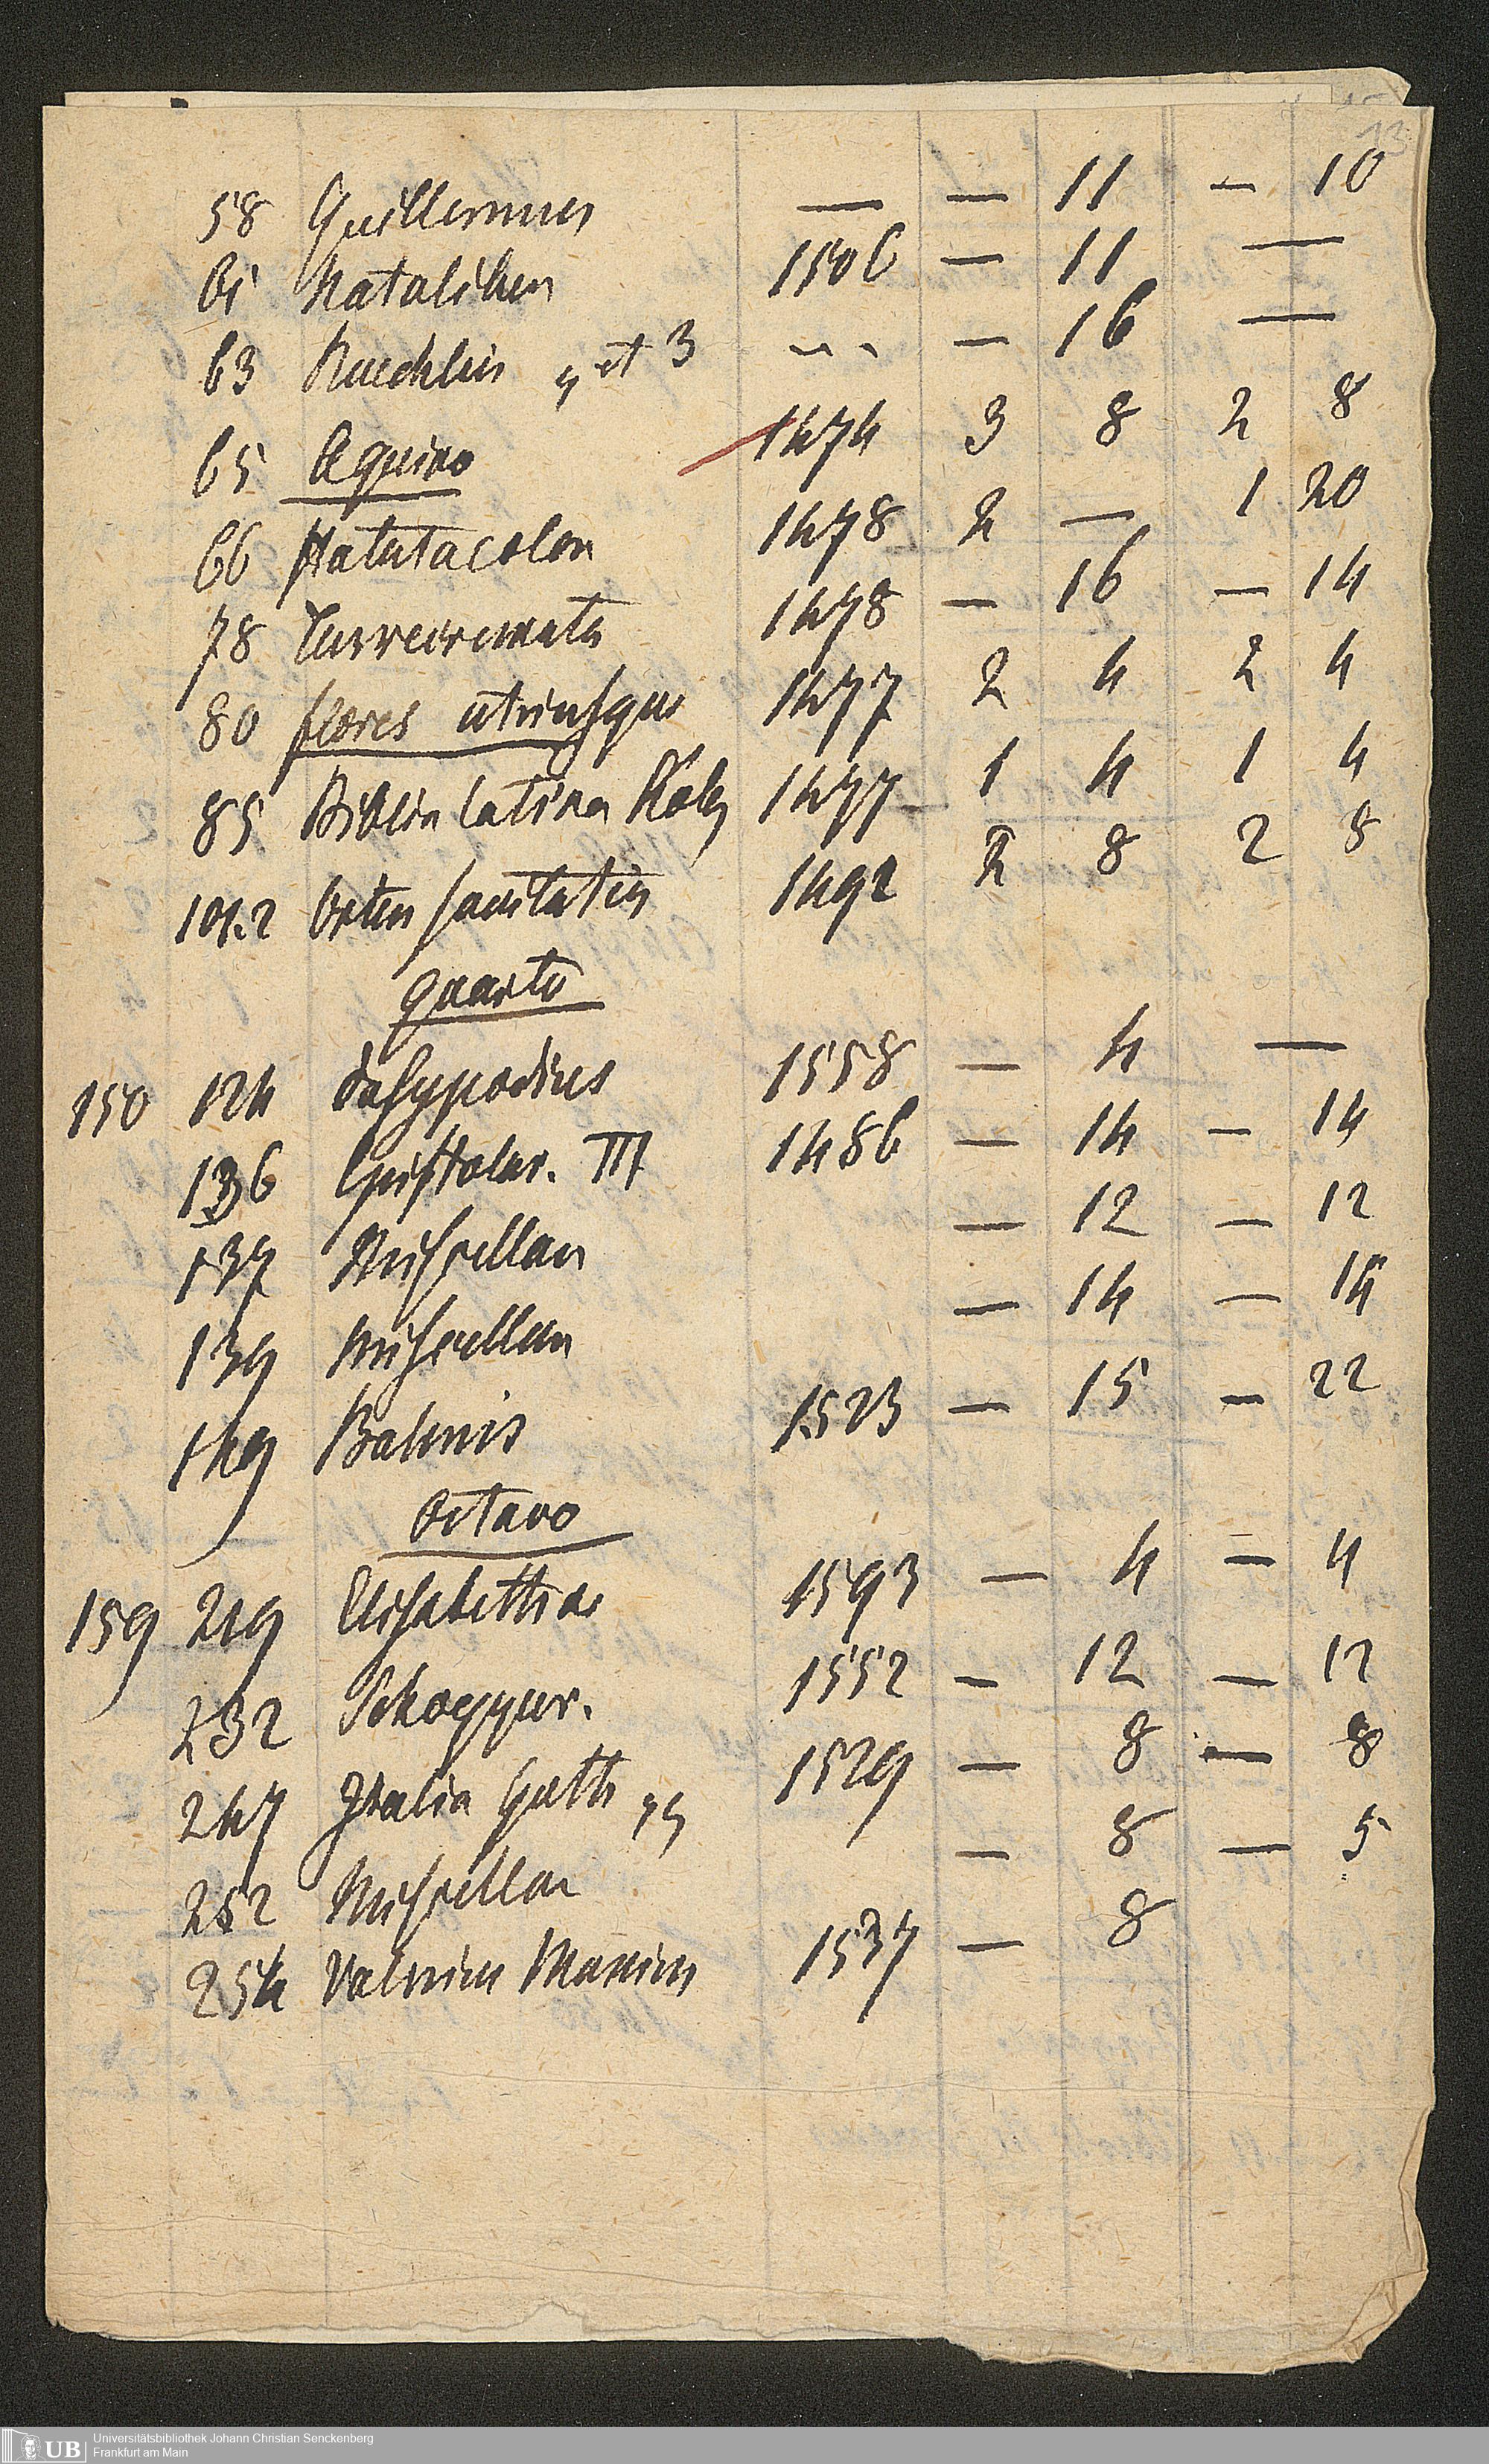 13
58 Guillermus — — 11 — 10
61 Natalibus 1506 — 11 —
63 et 3 - - - — 16 —
65 Aquino 1474 3 8 2 8
66 Statuta colon 1478 2 — 1 20
78 Turrecremata 1478 — 16 — 14
80 flores utriusque 1477 2 4 2 4
85 Biblia latina Kobg 1477 1 4 1 4
101.2 Ortus sanitatis 1492 2 8 2 8
Quarto
150 124 Dasypodius 1558 — 4 —
136 Epistolar. III 1486 — 14 — 14
137 Miscellan — 12 — 12
139 Miscellan — 14 — 14
149 1523 — 15 — 22
Octavo
159 219 Elisabethae 1593 — 4 — 4
232 Schopper. 1552 — 12 — 12
247 Italia Goth 1529 — 8 — 8
252 Miscellan — 8 — 5
254 Valerius Maxim 1537 — 8
UB Universitätsbibliothek Johann Christian Senckenberg
Frankfurt am Main